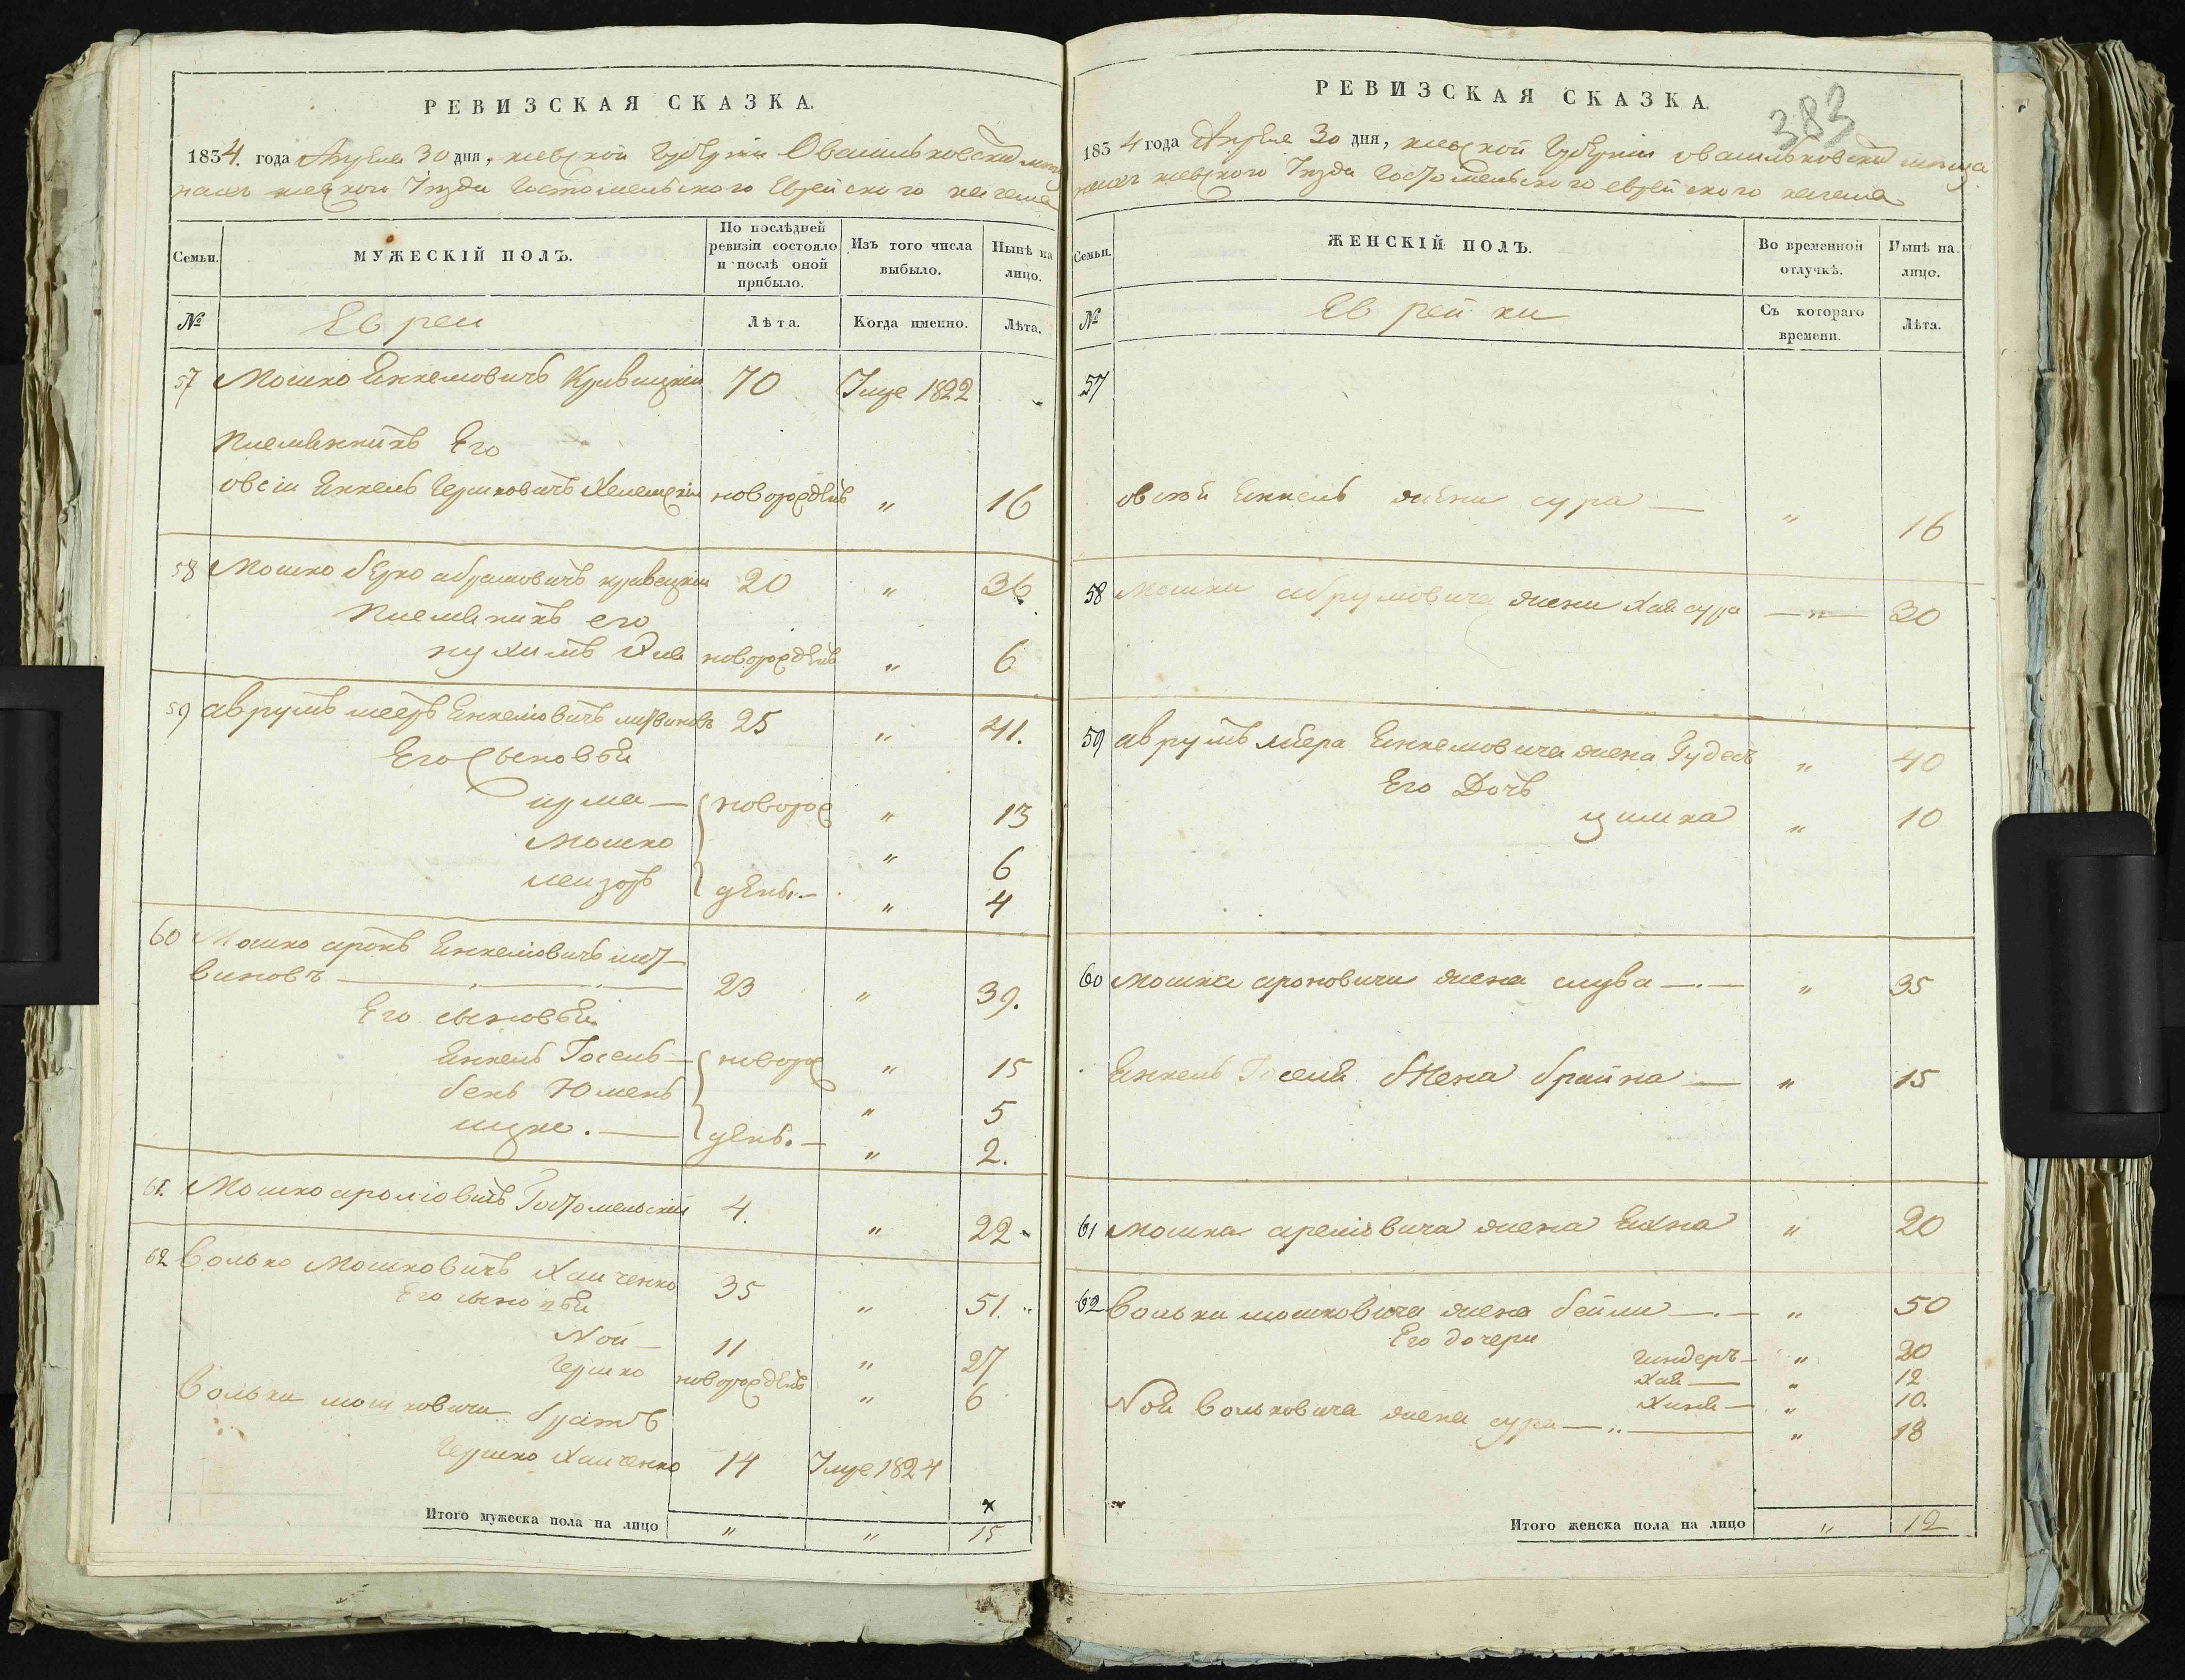 РЕВИЗСКАЯ СКАЗКА.
1834. года Апреля 30 дня, киевской Губернии О васильковских
киевского Уезда Гостомельского Еврейского кагала
Семьи.
МУЖЕСКІЙ ПОЛЪ.
По послѣдней ревизіи состояло и послѣ оной прибыло.
Изъ того числа выбыло.
Нынѣ на лицо.
№
Евреи
Лѣта.
Когда именно.
Лѣта.
57 Мошко Енкелювичъ Кривицкіи 70 Умре 1822
Племѣнникъ Его
овсіи Енкель Гершковичъ новорождень " 16
58 Мошко берко абрамовичъ кривецкіи 20 " 36.
Племѣникъ его
нухимъ новорождень " 6
59 аврумъ мееръ Енкелювичъ литвиновъ 25 " 41.
Его Сыновьи
новорож " 13
Мошко " 6
лейзоръ денъ.— " 4
60 Мошко аронъ Енкелювичъ лит-
виновъ 23 " 39.
Его сыновьи
Енкель Госель — новорож " 15
бень " 5
ицко. — денъ. — " 2.
61. Мошко Гостомельскіи 4. " 22
62 Волько Мошковичъ Хаиченко 35 " 51.
Его сыновьи
Ной — 11 " 27
Гершко новорождень " 6
Вольки мошковича братъ
Гершко Хаиченко 14 Умре 1824
х
Итого мужеска пола на лицо " " 15
РЕВИЗСКАЯ СКАЗКА.
383
1834 года Апреля 30 дня, киевской Губернии о васильковских меща
нахъ киевского Уезда Гостомельского еврейского кагала
Семьи.
ЖЕНСКІЙ ПОЛЪ.
Во временной отлучкѣ.
Нынѣ на лицо.
№
Еврейки
Съ котораго времени.
Лѣта.
57
овсей Енкель жена сура — " 16
58 Мошки абрумовича жена Хая сура — " — 30
59 аврумъ меера Енкелювича жена Гудесъ " 40
Его Дочь
цимка " 10
60 Мошка ароновича жена слува —.— " 35
Енкель Госеля жена брайна — " 15
61 Мошка жена Ехна " 20
62 Вольки мошковича жена бейла —.— " 50
Его дочери
Гиндеръ — " 20
Хая — " 12
Хина — " 10.
Ной Вольковича жена сура — " — " 18
Итого женска пола на лицо " 12